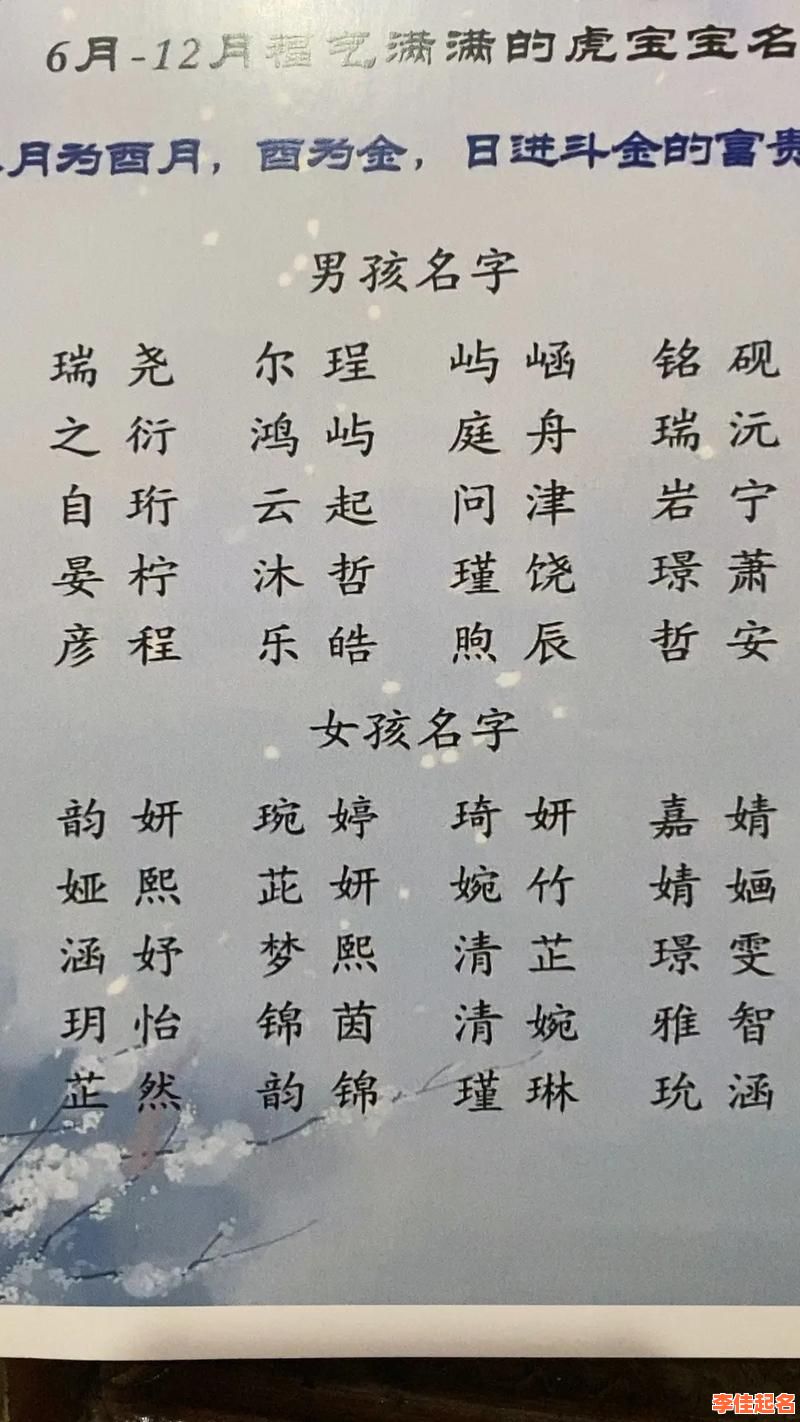 6月-12月福气满满的虎宝宝名
月为酉月，酉为金，日进斗金的富贵
男孩名字
瑞尧 尔珵 屿崡 铭砚
之衍 鸿屿 庭舟 瑞沅
自珩 云起 问津 岩宁
晏柠 沐哲 瑾饶 璟萧
彦程 乐皓 煦辰 哲安
女孩名字
韵妍 琬婷 琦妍 嘉婧
娅熙 茈妍 婉竹 婧婳
涵妤 梦熙 清芷 璟雯
玥怡 锦茵 清婉 雅智
芷然 韵锦 瑾琳 玧涵
李佳起名